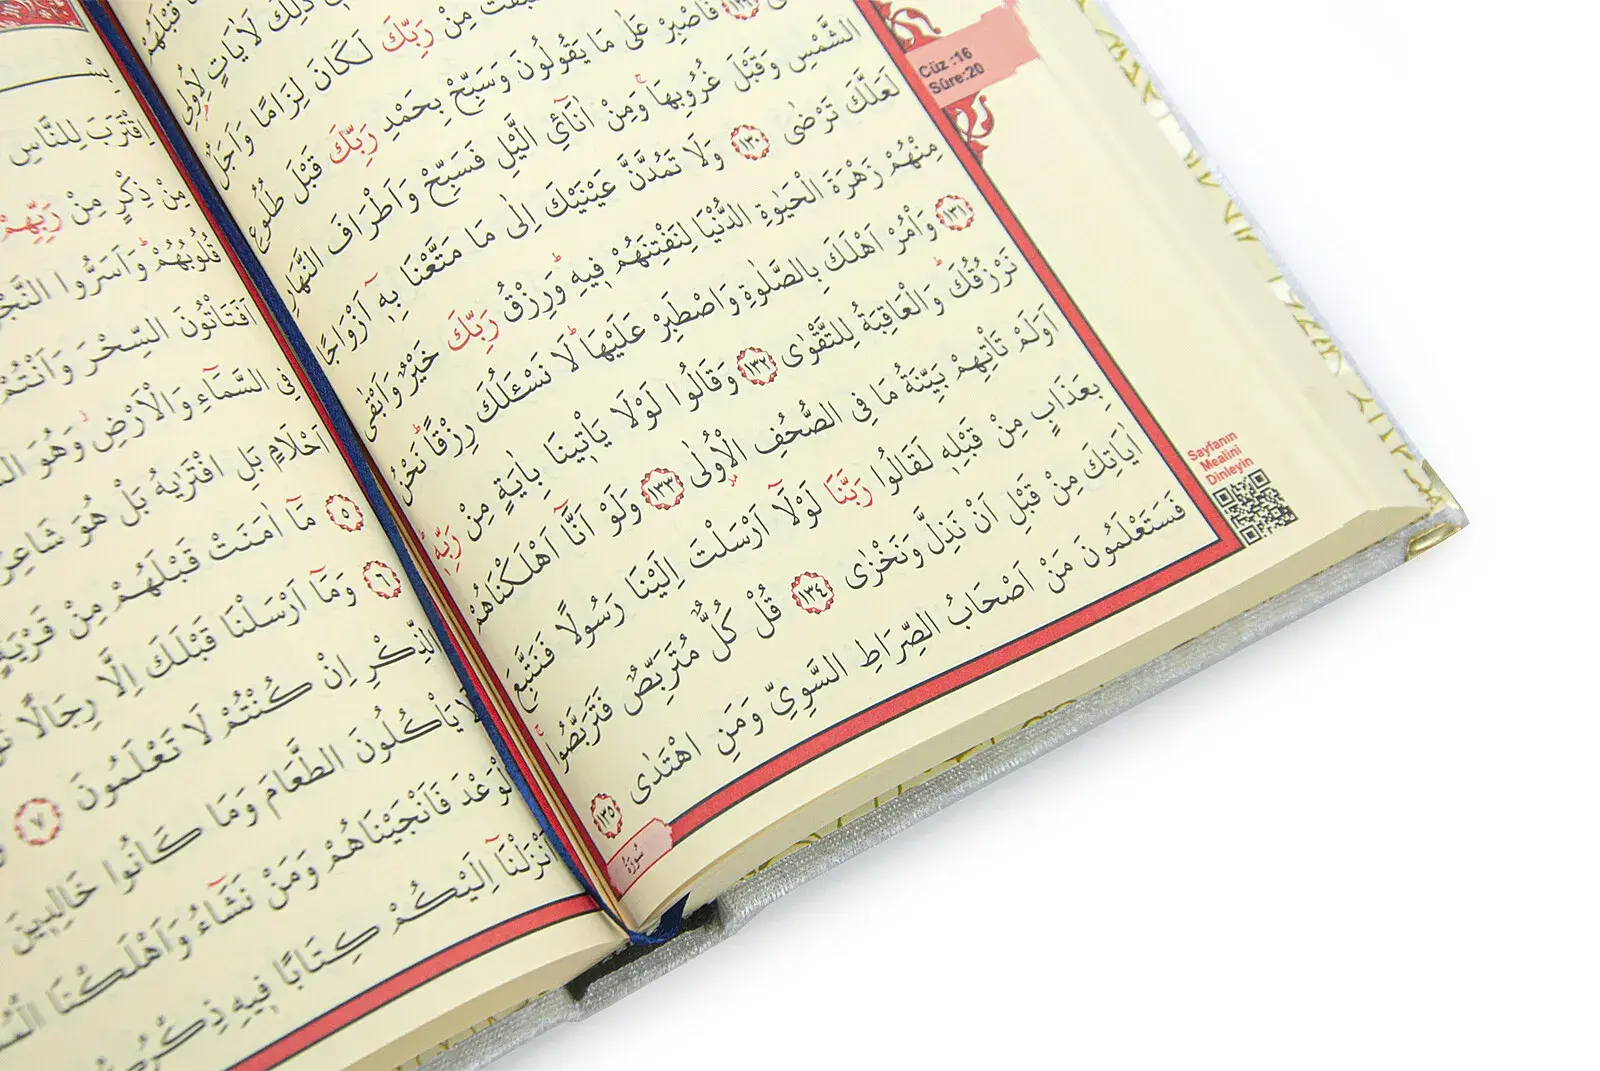 قَبْلَهُمْ
ذٰلِكَ لَاٰيَاتٍ لِاُو۬لِي
سَبَقَتْ مِنْ رَبِّكَ لَكَانَ لِزَامًا وَاَجَلٌ
فَاصْبِرْ عَلٰى مَا يَقُولُونَ وَسَبِّحْ بِحَمْدِ رَبِّكَ قَبْلَ طُلُوعِ
الشَّمْسِ وَقَبْلَ غُرُوبِهَاۚ وَمِنْ اٰنَآئِ الَّيْلِ فَسَبِّحْ وَاَطْرَافَ النَّهَارِ
لَعَلَّكَ تَرْضٰى ﴿١٣٠﴾ وَلَا تَمُدَّنَّ عَيْنَيْكَ اِلٰى مَا مَتَّعْنَا بِه۪ٓ اَزْوَاجًا
مِنْهُمْ زَهْرَةَ الْحَيٰوةِ الدُّنْيَا لِنَفْتِنَهُمْ ف۪يهِۜ وَرِزْقُ رَبِّكَ خَيْرٌ وَاَبْقٰى
﴿١٣١﴾ وَأْمُرْ اَهْلَكَ بِالصَّلٰوةِ وَاصْطَبِرْ عَلَيْهَاۜ لَا نَسْـَٔلُكَ رِزْقًاۜ نَحْنُ
نَرْزُقُكَۜ وَالْعَاقِبَةُ لِلتَّقْوٰى ﴿١٣٢﴾ وَقَالُوا لَوْلَا يَأْت۪ينَا بِاٰيَةٍ مِنْ رَبِّه۪ۜ
اَوَلَمْ تَأْتِهِمْ بَيِّنَةُ مَا فِي الصُّحُفِ الْاُو۫لٰى ﴿١٣٣﴾ وَلَوْ اَنَّٓا اَهْلَكْنَاهُمْ
بِعَذَابٍ مِنْ قَبْلِه۪ لَقَالُوا رَبَّنَا لَوْلَٓا اَرْسَلْتَ اِلَيْنَا رَسُولًا فَنَتَّبِعَ
اٰيَاتِكَ مِنْ قَبْلِ اَنْ نَذِلَّ وَنَخْزٰى ﴿١٣٤﴾ قُلْ كُلٌّ مُتَرَبِّصٌ فَتَرَبَّصُواۚ
فَسَتَعْلَمُونَ مَنْ اَصْحَابُ الصِّرَاطِ السَّوِيِّ وَمَنِ اهْتَدٰى ﴿١٣٥﴾
سُورَةُ
Cüz :16
Sûre:20
Sayfanın
Mealini
Dinleyin
اِقْتَرَبَ لِلنَّاسِ
مِنْ ذِكْرٍ مِنْ رَبِّهِمْ
قُلُوبُهُمْۜ وَاَسَرُّوا النَّجْ
اَفَتَأْتُونَ السِّحْرَ وَاَنْتُمْ
فِي السَّمَٓاءِ وَالْاَرْضِۘ وَهُوَ
اَحْلَامٍ بَلِ افْتَرٰيهُ بَلْ هُوَ شَاعِرٌ
﴿٥﴾ مَٓا اٰمَنَتْ قَبْلَهُمْ مِنْ قَرْيَةٍ
﴿٦﴾ وَمَٓا اَرْسَلْنَا قَبْلَكَ اِلَّا رِجَالًا
الذِّكْرِ اِنْ كُنْتُمْ لَا تَعْلَمُونَ ﴿٧﴾
لَا يَأْكُلُونَ الطَّعَامَ وَمَا كَانُوا خَالِد۪ينَ
الْوَعْدَ فَاَنْجَيْنَاهُمْ وَمَنْ نَشَٓاءُ وَاَهْلَكْنَا
اَنْزَلْنَٓا اِلَيْكُمْ كِتَابًا ف۪يهِ ذِكْرُ